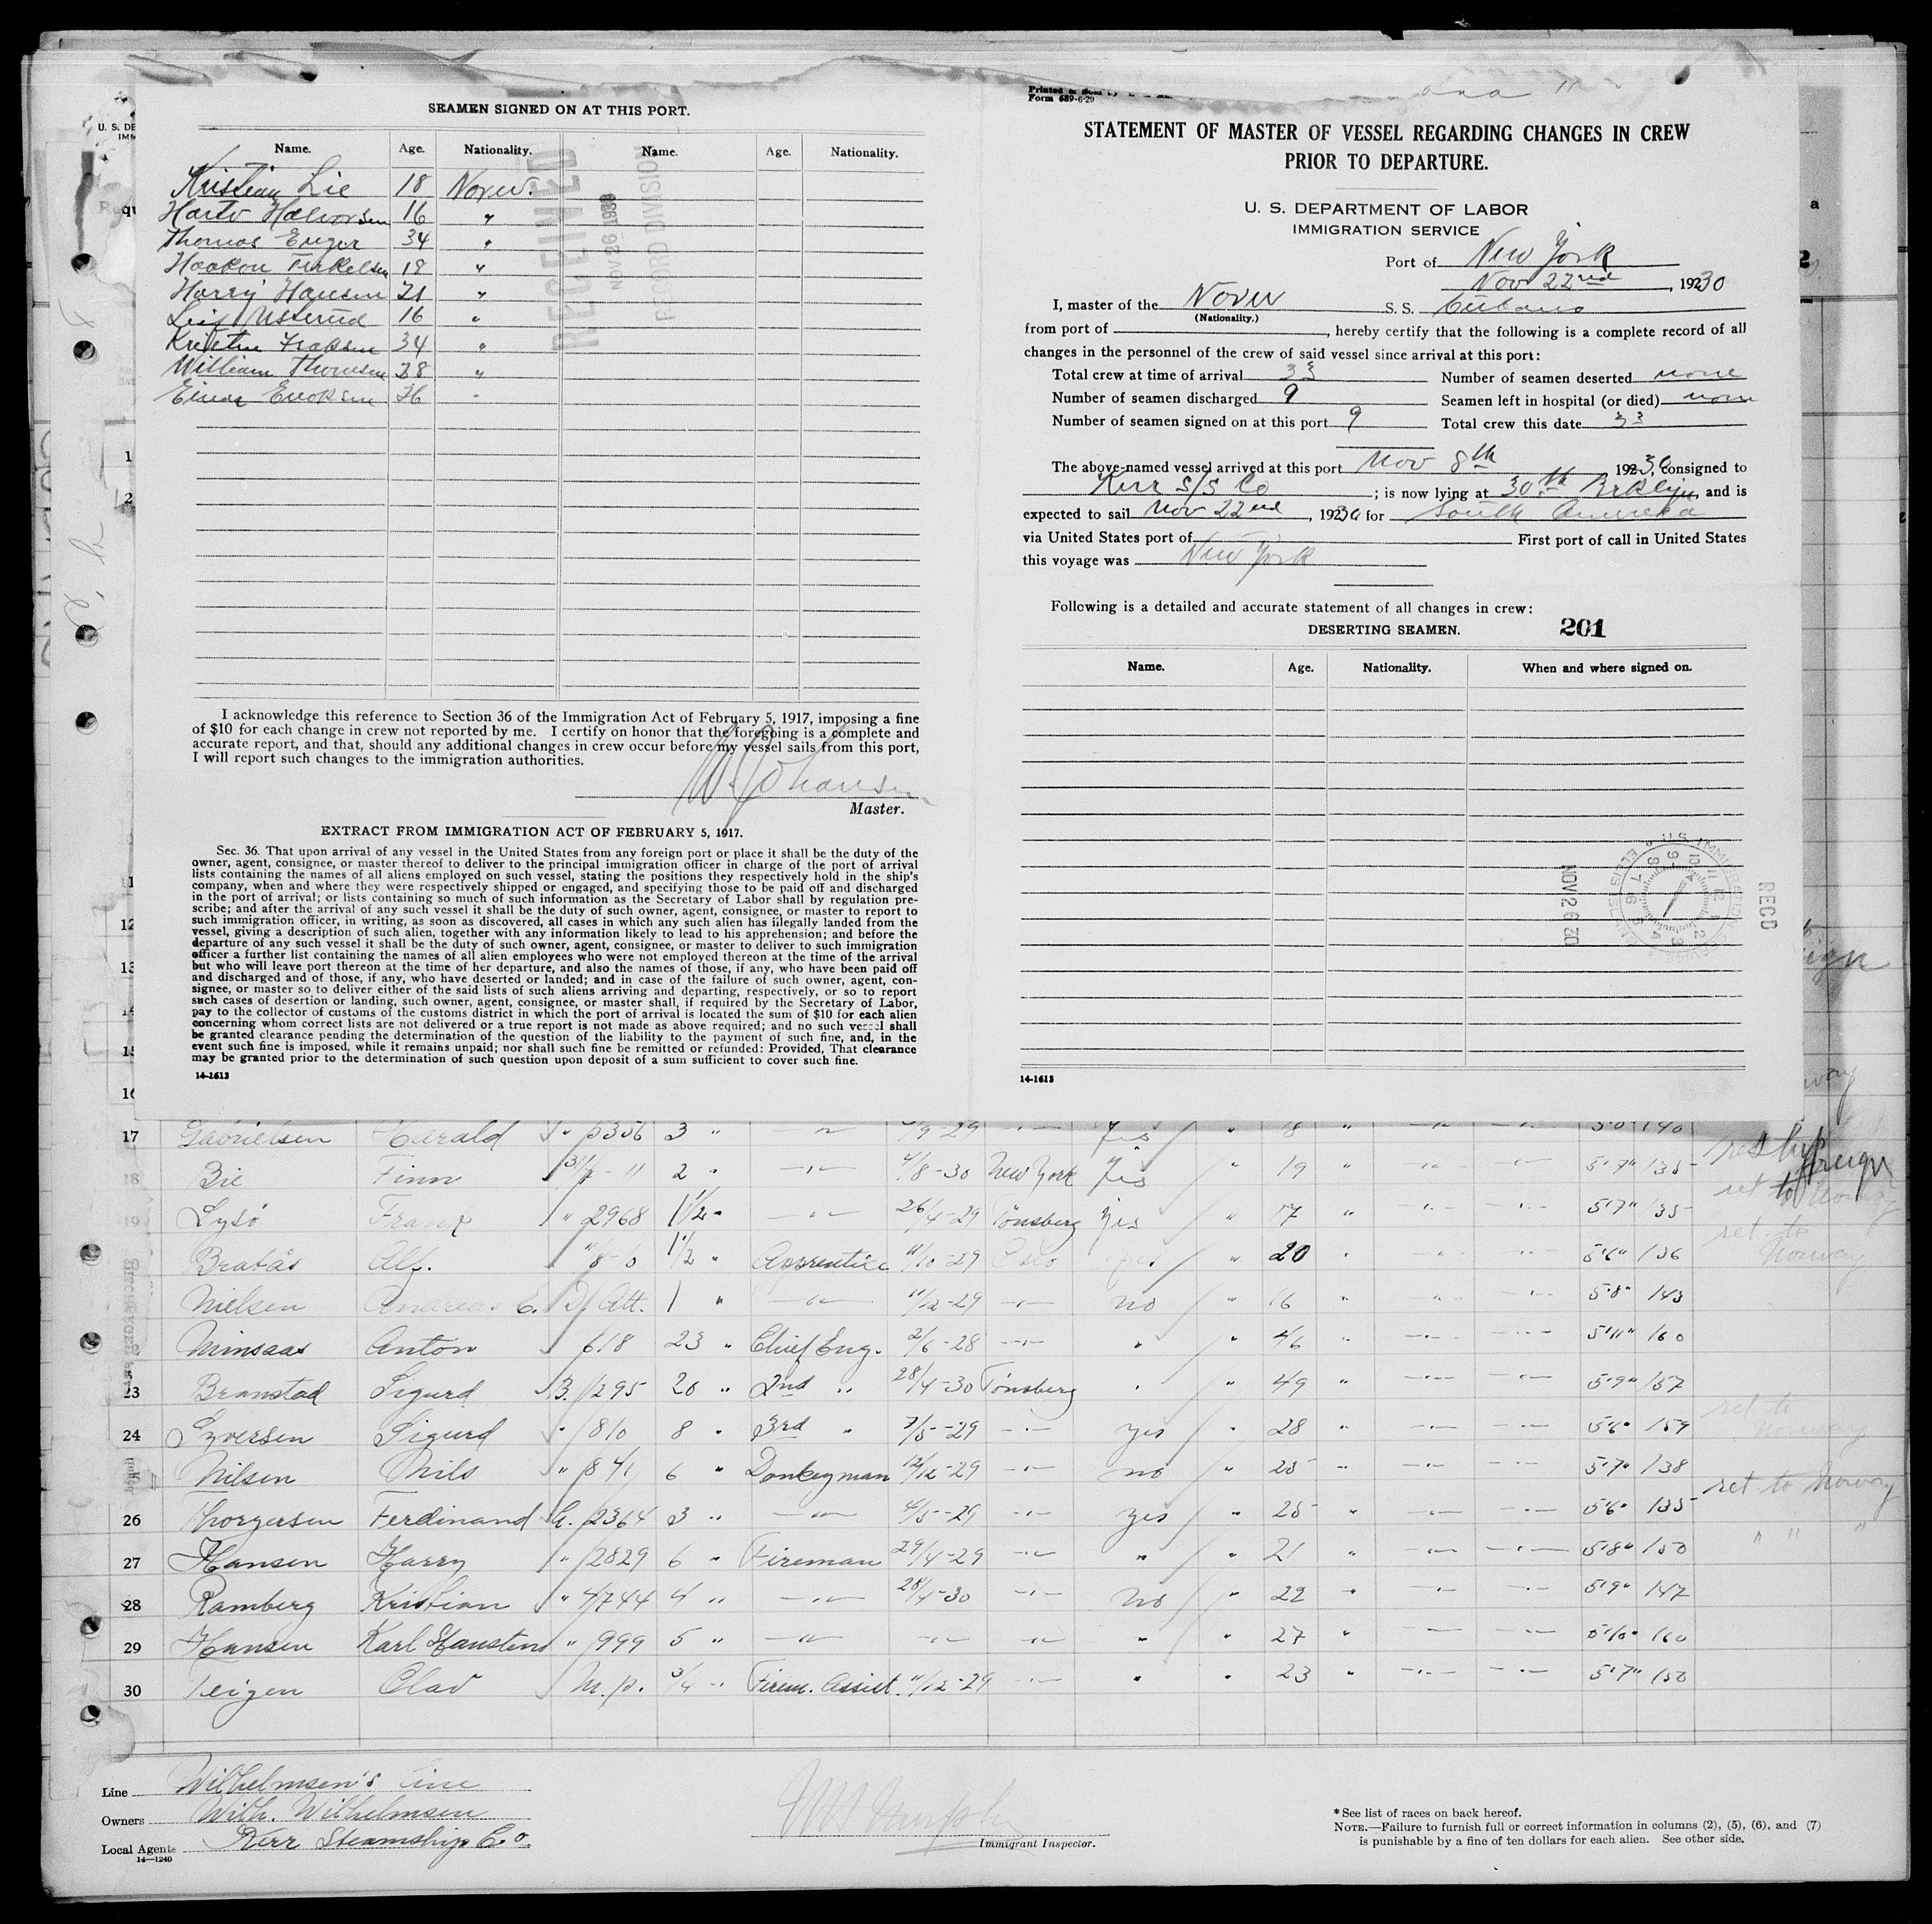 SEAMEN SIGNED ON AT THIS PORT.
Name. Age. Nationality. Name. Age. Nationality.
Kristian Lie 18 Norw.
Halvorsen 16 "
Thomas Enger 34 "
Haakon 18 "
Harry Hansen 21 "
Leif 16 "
34 "
William Thomsen 28 "
Einar 26 "
RECEIVED
NOV 26 1930
RECORD DIVISION
I acknowledge this reference to Section 36 of the Immigration Act of February 5, 1917, imposing a fine
of $10 for each change in crew not reported by me. I certify on honor that the foregoing is a complete and
accurate report, and that, should any additional changes in crew occur before my vessel sails from this port,
I will report such changes to the immigration authorities.
Johansen
Master.
EXTRACT FROM IMMIGRATION ACT OF FEBRUARY 5, 1917.
Sec. 36. That upon arrival of any vessel in the United States from any foreign port or place it shall be the duty of the
owner, agent, consignee, or master thereof to deliver to the principal immigration officer in charge of the port of arrival
lists containing the names of all aliens employed on such vessel, stating the positions they respectively hold in the ship's
company, when and where they were respectively shipped or engaged, and specifying those to be paid off and discharged
in the port of arrival; or lists containing so much of such information as the Secretary of Labor shall by regulation pre-
scribe; and after the arrival of any such vessel it shall be the duty of such owner, agent, consignee, or master to report to
such immigration officer, in writing, as soon as discovered, all cases in which any such alien has illegally landed from the
vessel, giving a description of such alien, together with any information likely to lead to his apprehension; and before the
departure of any such vessel it shall be the duty of such owner, agent, consignee, or master to deliver to such immigration
officer a further list containing the names of all alien employees who were not employed thereon at the time of the arrival
but who will leave port thereon at the time of her departure, and also the names of those, if any, who have been paid off
and discharged and of those, if any, who have deserted or landed; and in case of the failure of such owner, agent, con-
signee, or master so to deliver either of the said lists of such aliens arriving and departing, respectively, or so to report
such cases of desertion or landing, such owner, agent, consignee, or master shall, if required by the Secretary of Labor,
pay to the collector of customs of the customs district in which the port of arrival is located the sum of $10 for each alien
concerning whom correct lists are not delivered or a true report is not made as above required; and no such vessel shall
be granted clearance pending the determination of the question of the liability to the payment of such fine, and, in the
event such fine is imposed, while it remains unpaid; nor shall such fine be remitted or refunded: Provided, That clearance
may be granted prior to the determination of such question upon deposit of a sum sufficient to cover such fine.
14-1613
Form 689-6-29
STATEMENT OF MASTER OF VESSEL REGARDING CHANGES IN CREW
PRIOR TO DEPARTURE.
U. S. DEPARTMENT OF LABOR
IMMIGRATION SERVICE
Port of New York
Nov 22nd, 1930
I, master of the Norw S. S. Cubano
(Nationality.)
from port of , hereby certify that the following is a complete record of all
changes in the personnel of the crew of said vessel since arrival at this port:
Total crew at time of arrival 33 Number of seamen deserted none
Number of seamen discharged 9 Seamen left in hospital (or died) none
Number of seamen signed on at this port 9 Total crew this date 33
The above-named vessel arrived at this port Nov 8th 1930, consigned to
Kerr S/S Co ; is now lying at 30th Brklyn, and is
expected to sail Nov 22nd, 1930 for South America
via United States port of First port of call in United States
this voyage was New York
Following is a detailed and accurate statement of all changes in crew:
DESERTING SEAMEN. 201
Name. Age. Nationality. When and where signed on.
RECD
NOV 26 30
14-1613
17 Gabrielsen Harald " 5356 3 " 18 "
18 Bie Finn 2 " 4/8-30 New York Yes " 19 " 5'7" 135
19 Lysö Frank " 2968 1 1/2 " 26/4-29 Tönsberg Yes " 17 " 5'7" 135
Bratås Alf. 1 1/2 " Apprentice 11/10-29 Oslo yes " 20 " 5'6" 136
Nielsen Andreas E. Att. 1 " 11/12-29 no " 16 " 5'8" 143
Nimsaas Anton 618 23 " Chief Eng. 2/6-28 " " 46 " 5'11" 160
23 Branstad Sigurd B. 1295 20 " 2nd " 28/4-30 Tönsberg " " 49 " 5'9" 157
24 Syversen Sigurd " 810 8 " 3rd " 7/5-29 yes " 28 " 5'6" 159
Nilsen Nils " 841 6 " Donkeyman 12/12-29 no " 25 " 5'7" 138
26 Thorgersen Ferdinand 2364 3 " 4/5-29 yes " 25 " 5'6" 135 ret to Norway
27 Hansen Harry " 2829 6 " Fireman 29/4-29 " " 21 " 5'8" 150 " " "
28 Ramberg Kristian " 4744 4 " 28/4-30 no " 22 " 5'9" 147
29 Hansen Karl " 999 5 " " " 27 " 5'10" 160
30 Teigen Olav M.p. 3/4 " Firem. Assist. 11/12-29 " " 23 " 5'7" 150
Line Wilhelmsen's Line
Owners Wilh. Wilhelmsen
Local Agents Kerr Steamship Co.
14-1240
Immigrant Inspector.
*See list of races on back hereof.
NOTE.—Failure to furnish full or correct information in columns (2), (5), (6), and (7)
is punishable by a fine of ten dollars for each alien. See other side.